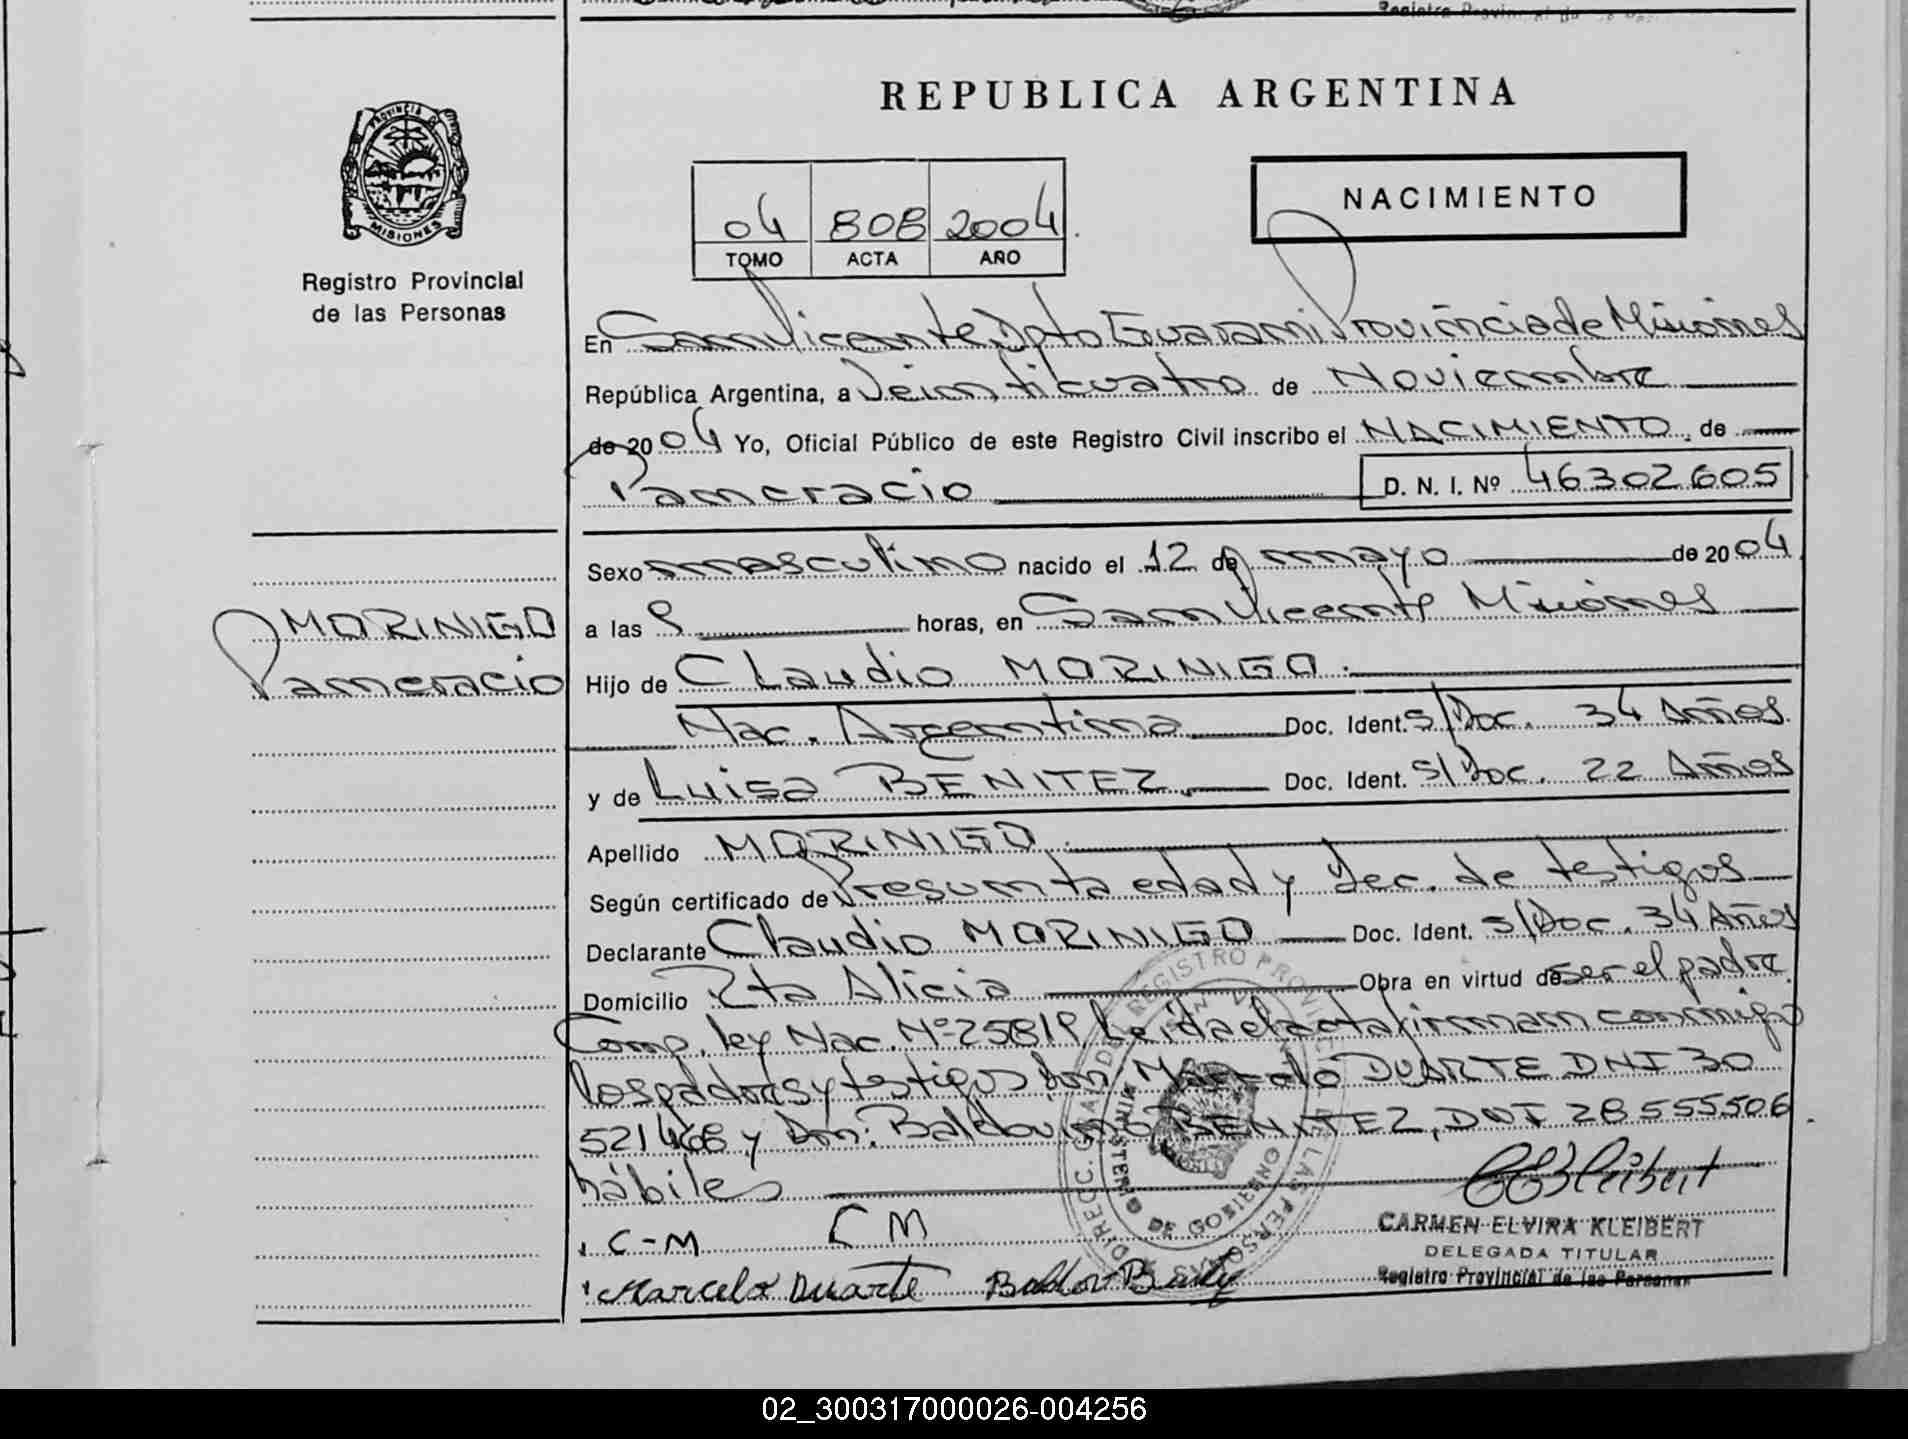 REPUBLICA ARGENTINA
PROVINCIA DE
MISIONES
Registro Provincial
de las Personas
04 808 2004
TOMO ACTA AÑO
NACIMIENTO
En San Vicente Dpto Guarani Provincia de Misiones
República Argentina, a Veinticuatro de Noviembre
de 2004 Yo, Oficial Público de este Registro Civil inscribo el NACIMIENTO de
Pancracio D. N. I. Nº 46302605
Sexo masculino nacido el 12 de mayo de 2004
MORINIGO
Pancracio
a las 9 horas, en San Vicente Misiones
Hijo de Claudio MORINIGO.
Nac. Argentina Doc. Ident. S/Doc. 34 Años
y de Luisa BENITEZ Doc. Ident. S/Doc. 22 Años
Apellido MORINIGO
Según certificado de Presunta edad y Dec. de testigos
Declarante Claudio MORINIGO Doc. Ident. S/Doc. 34 Años
Domicilio Pto Alicia Obra en virtud de ser el padre
Comp. ley Nac. Nº 25819 Leida el acta firman conmigo
los padres y testigos Don Marcelo DUARTE DNI 30
521468 y Don: Baldovino BENITEZ, DNI 28555506
hábiles
C-M CM
CARMEN ELVIRA KLEIBERT
DELEGADA TITULAR
Registro Provincial de las Personas
Marcelo Duarte
02_300317000026-004256